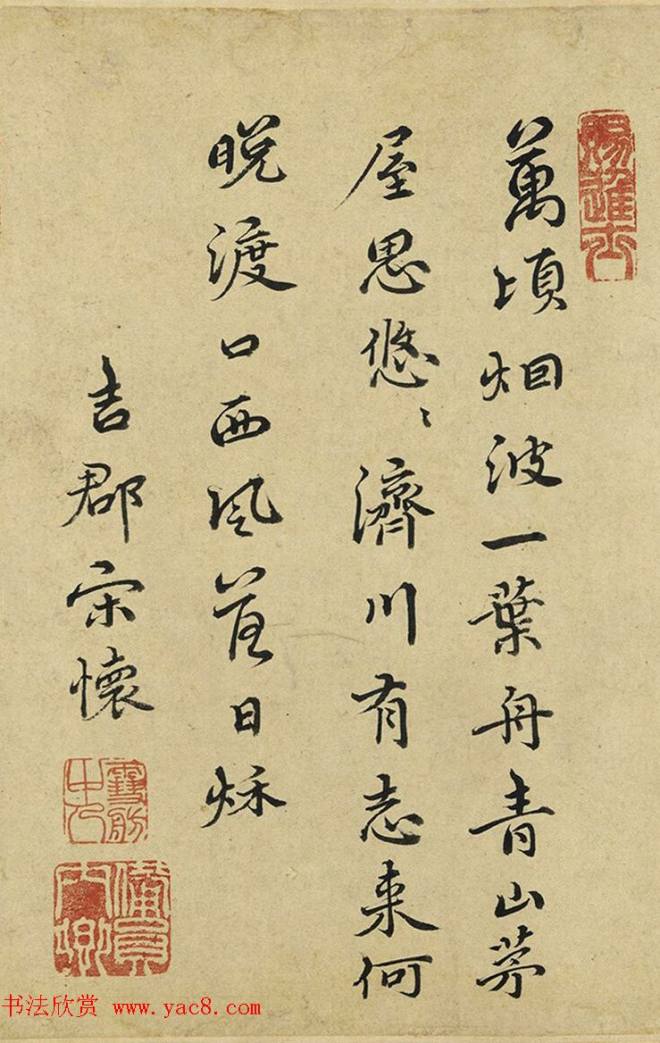 萬頃烟波一葉舟青山茅
屋思悠〻濟川有志来何
晚渡口西風日秌
吉郡宋懷
书法欣赏 www.yac8.com